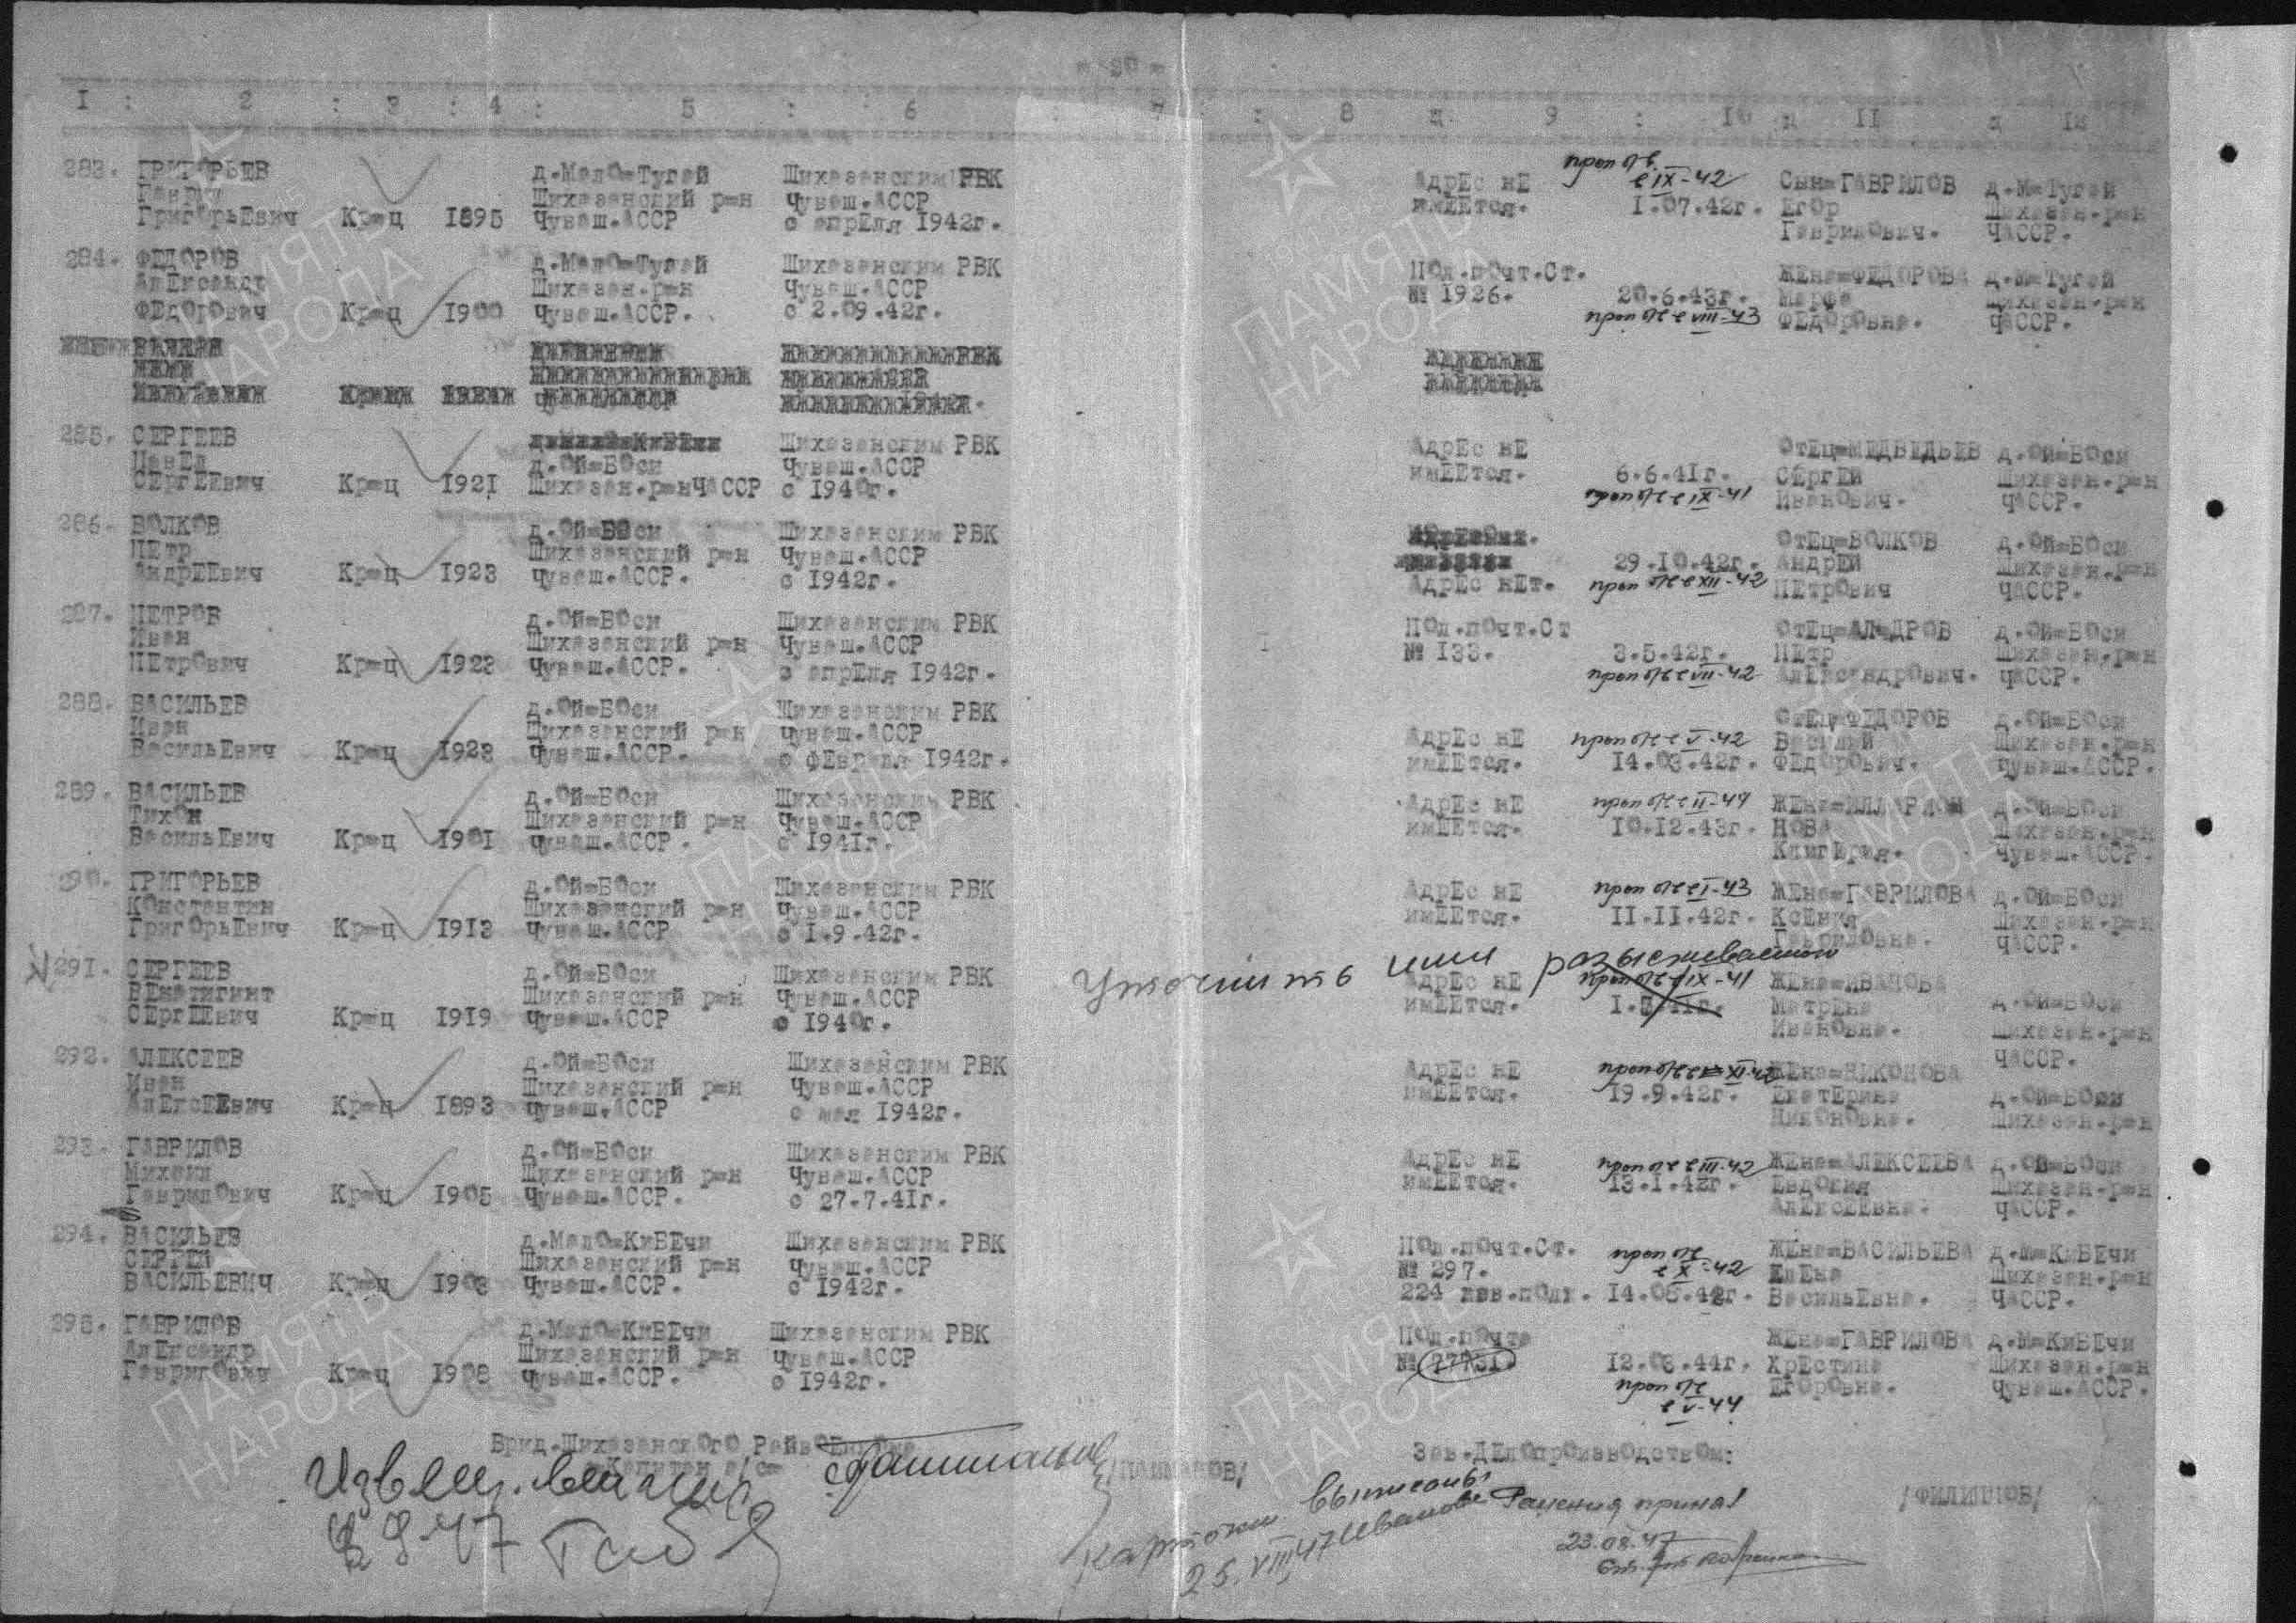 - 20 -
1 : 2 : 3 : 4 : 5 : 6 : 7 : 8 : 9 : 10 : 11 : 12
283. ГРИГОРЬЕВ д.Мало-Тугай Шихазанским РВК Адрес не проп б/в с IX-42 Сын-ГАВРИЛОВ д.М-Тугай
Шихазанский р-н Чуваш.АССР имеется. 1.07.42г. Егор Шихазан.р-н
Григорьевич Кр-ц 1895 Чуваш.АССР с апреля 1942г. Гаврилович. ЧАССР.
284. ФЕДОРОВ д.Мало-Тугай Шихазанским РВК Пол.почт.Ст. Жена-ФЕДОРОВА д.М-Тугай
Александр Шихазан.р-н Чуваш.АССР № 1926. 20.6.43г. Марфа Шихазан.р-н
Федорович Кр-ц 1900 Чуваш.АССР. с 2.09.42г. проп б/в с VIII-43 Федоровна. ЧАССР.
285. СЕРГЕЕВ Шихазанским РВК Адрес не Отец-МЕДВЕДЬЕВ д.Ой-Воси
Павел д.Ой-Воси Чуваш.АССР имеется. 6.6.41г. Сергей Шихазан.р-н
Сергеевич Кр-ц 1921 Шихазан.р-нЧАССР с 1940г. проп б/в с IX-41 Иванович. ЧАССР.
286. ВОЛКОВ д.Ой-Воси Шихазанским РВК Отец-ВОЛКОВ д.Ой-Воси
Петр Шихазанский р-н Чуваш.АССР 29.10.42г. Андрей Шихазан.р-н
Андреевич Кр-ц 1923 Чуваш.АССР. с 1942г. Адрес нет. проп б/в с XII-42 Петрович ЧАССР.
287. ПЕТРОВ д.Ой-Воси Шихазанским РВК Пол.почт.Ст Отец-АЛ-ДРОВ д.Ой-Воси
Иван Шихазанский р-н Чуваш.АССР № 133. 3.5.42г. Петр Шихазан.р-н
Петрович Кр-ц 1923 Чуваш.АССР. с апреля 1942г. проп б/в с VII-42 Александрович. ЧАССР.
288. ВАСИЛЬЕВ д.Ой-Воси Шихазанским РВК Отец-ФЕДОРОВ д.Ой-Воси
Иван Шихазанский р-н Чуваш.АССР Адрес не проп б/в с V-42 Василий Шихазан.р-н
Васильевич Кр-ц 1923 Чуваш.АССР. с февраля 1942г. имеется. 14.03.42г. Федорович. Чуваш.АССР.
289. ВАСИЛЬЕВ д.Ой-Воси Шихазанским РВК Адрес не проп б/в с II-44 Жена-ИЛЛАРИОН д.Ой-Воси
Тихон Шихазанский р-н Чуваш.АССР имеется. 10.12.43г. НОВА Шихазан.р-н
Васильевич Кр-ц 1901 Чуваш.АССР. с 1941г. Чуваш.АССР.
290. ГРИГОРЬЕВ д.Ой-Воси Шихазанским РВК Адрес не проп б/в с I-43 Жена-ГАВРИЛОВА д.Ой-Воси
Константин Шихазанский р-н Чуваш.АССР имеется. 11.11.42г. Ксения Шихазан.р-н
Григорьевич Кр-ц 1913 Чуваш.АССР с 1.9.42г. Гавриловна. ЧАССР.
Уточнить имя разыскиваемого
291. СЕРГЕЕВ д.Ой-Воси Шихазанским РВК Адрес не проп б/в с IX-41 Жена-ИВАНОВА
Шихазанский р-н Чуваш.АССР имеется. Матрена д.Ой-Воси
Сергеевич Кр-ц 1919 Чуваш.АССР с 1940г. Ивановна. Шихазан.р-н
ЧАССР.
292. АЛЕКСЕЕВ д.Ой-Воси Шихазанским РВК Адрес не проп б/в с XI-42 Жена-НИКОНОВА
Иван Шихазанский р-н Чуваш.АССР имеется. 19.9.42г. Екатерина д.Ой-Воси
Алексеевич Кр-ц 1893 Чуваш.АССР с мая 1942г. Никоновна. Шихазан.р-н
293. ГАВРИЛОВ д.Ой-Воси Шихазанским РВК Адрес не проп б/в с III-42 Жена-АЛЕКСЕЕВА д.Ой-Воси
Михаил Шихазанский р-н Чуваш.АССР имеется. 13.1.42г. Евдокия Шихазан.р-н
Гаврилович Кр-ц 1905 Чуваш.АССР. с 27.7.41г. Алексеевна. ЧАССР.
294. ВАСИЛЬЕВ д.Мало-Кибечи Шихазанским РВК Пол.почт.Ст. проп б/в Жена-ВАСИЛЬЕВА д.М-Кибечи
СЕРГЕЙ Шихазанский р-н Чуваш.АССР № 297. с X-42 Елена Шихазан.р-н
ВАСИЛЬЕВИЧ Кр-ц 1903 Чуваш.АССР. с 1942г. 224 кав.полк. Васильевна. ЧАССР.
295. ГАВРИЛОВ д.Мало-Кибечи Шихазанским РВК Пол.почта Жена-ГАВРИЛОВА д.М-Кибечи
Александр Шихазанский р-н Чуваш.АССР 12.03.44г. Хрестина Шихазан.р-н
Гаврилович Кр-ц 1908 Чуваш.АССР. с 1942г. проп б/в с V-44 Егоровна. Чуваш.АССР.
Врид.Шихазанского Райвоенкома Зав.Делопроизводством:
Капитан а/с /ФИЛИППОВ/
Карточки выписаны
25.VIII 47 Иванова
Решения принял
23.08.47